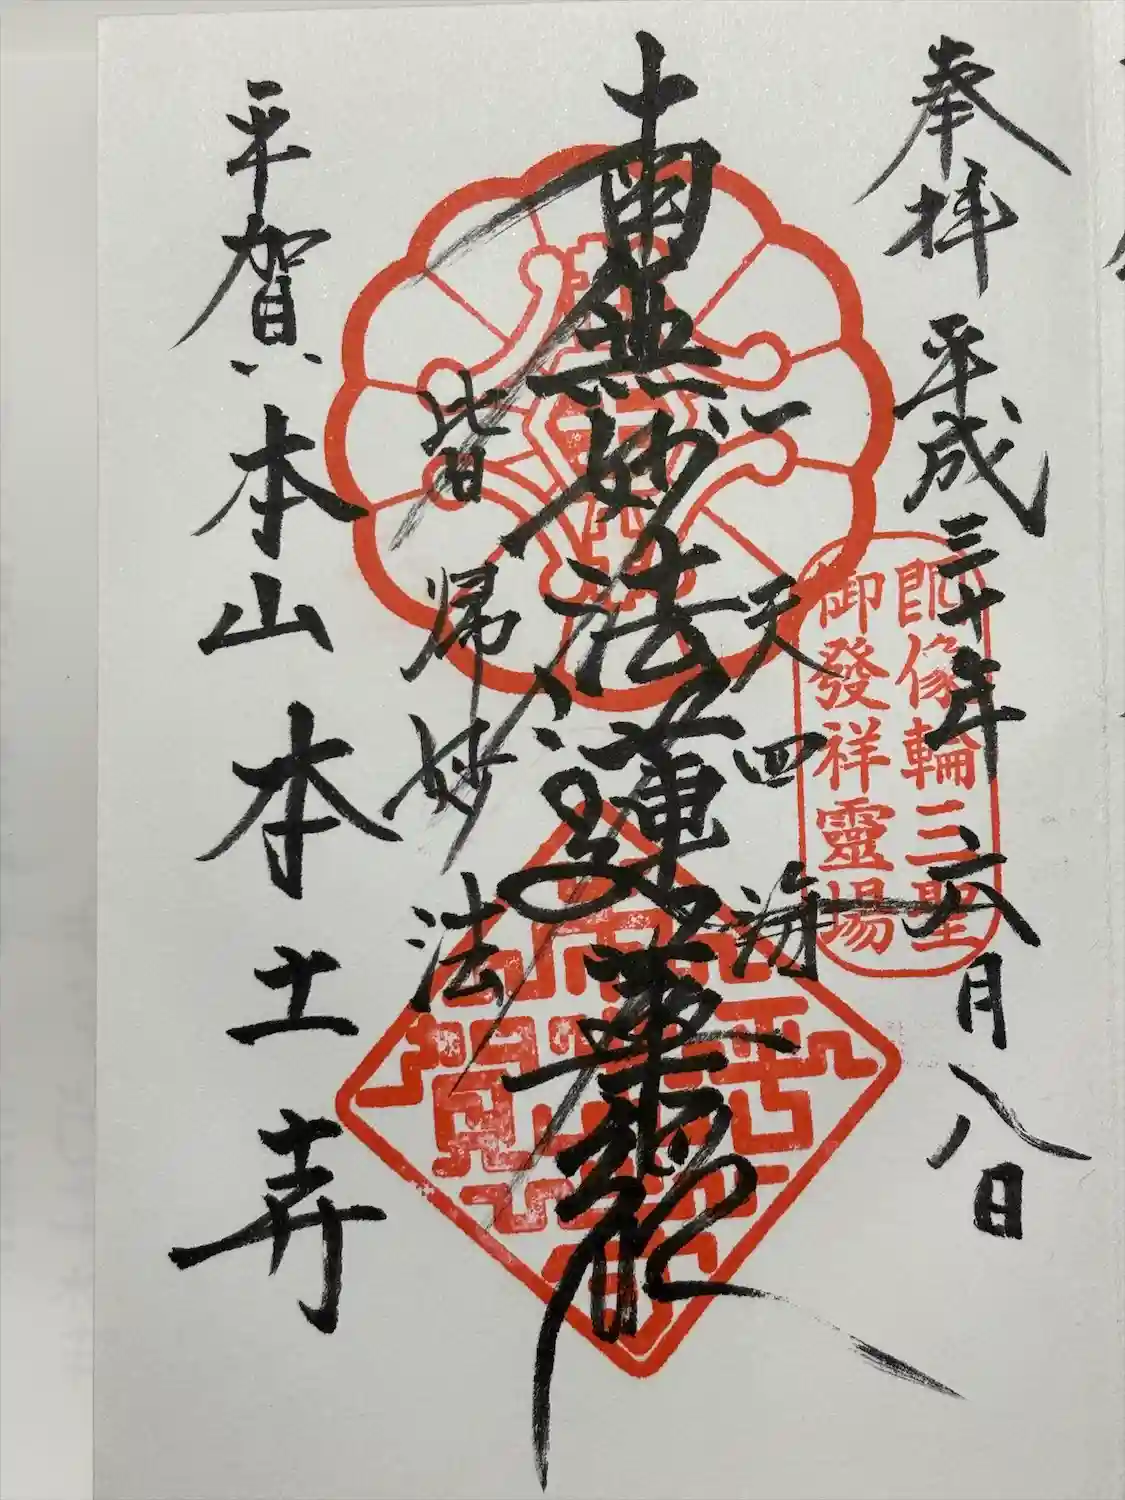 奉拝 平成三十年六月八日
朗像輪三聖
御發祥靈場
一天四海
南無妙法蓮華経
皆帰妙法
平賀本山本土寺